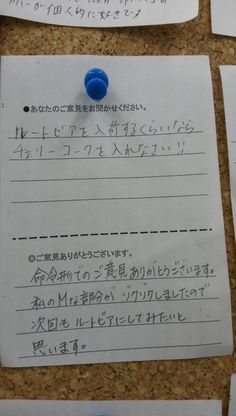 バーが個人的に好きで
●あなたのご意見をお聞かせください。
ルートビアを入荷するくらいなら
チェリーコークを入れなさい!!
◎ご意見ありがとうございます。
命令形でのご意見ありがとうございます。
私のMな部分がゾクゾクしましたので
次回もルートビアにしてみたいと
思います。